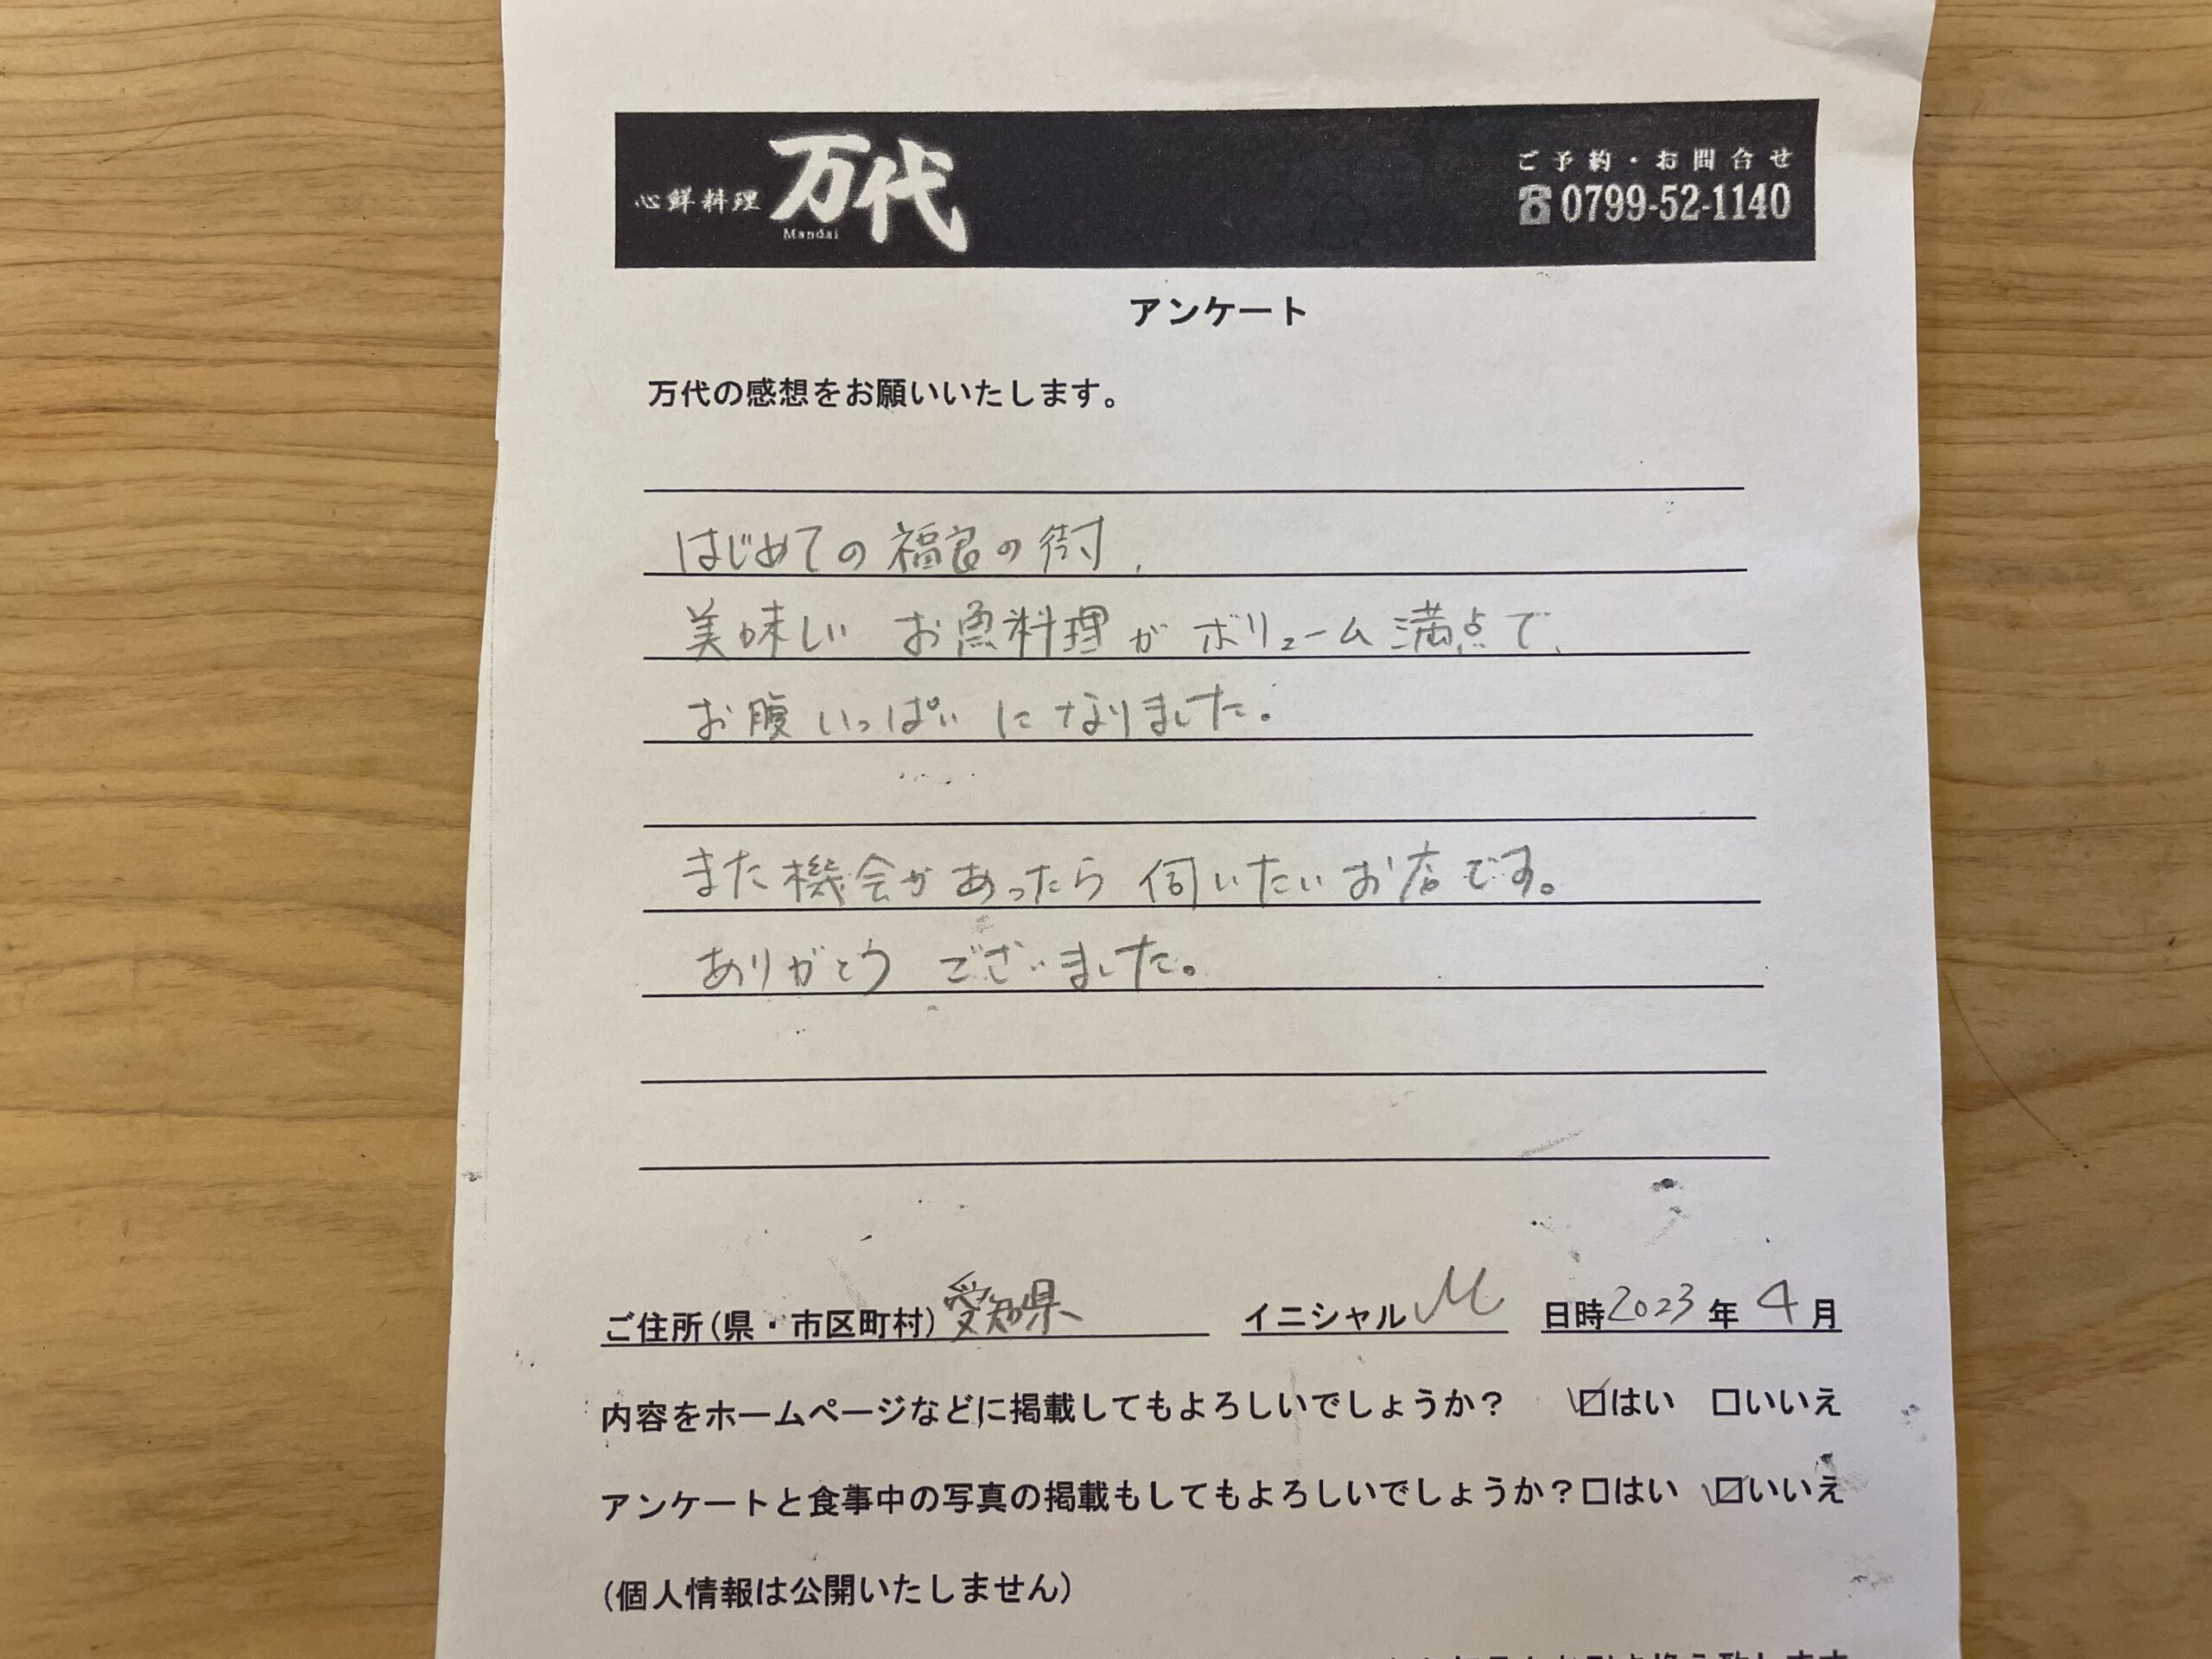 心鮮料理 万代
Mandai
ご予約・お問合せ
☎0799-52-1140
アンケート
万代の感想をお願いいたします。
はじめての福良の街、
美味しい お魚料理が ボリューム満点で、
お腹いっぱいになりました。
また機会があったら 伺いたいお店です。
ありがとう ございました。
ご住所(県・市区町村) 愛知県 イニシャル M 日時 2023年 4月
内容をホームページなどに掲載してもよろしいでしょうか? ☑はい □いいえ
アンケートと食事中の写真の掲載もしてもよろしいでしょうか? □はい ☑いいえ
(個人情報は公開いたしません)